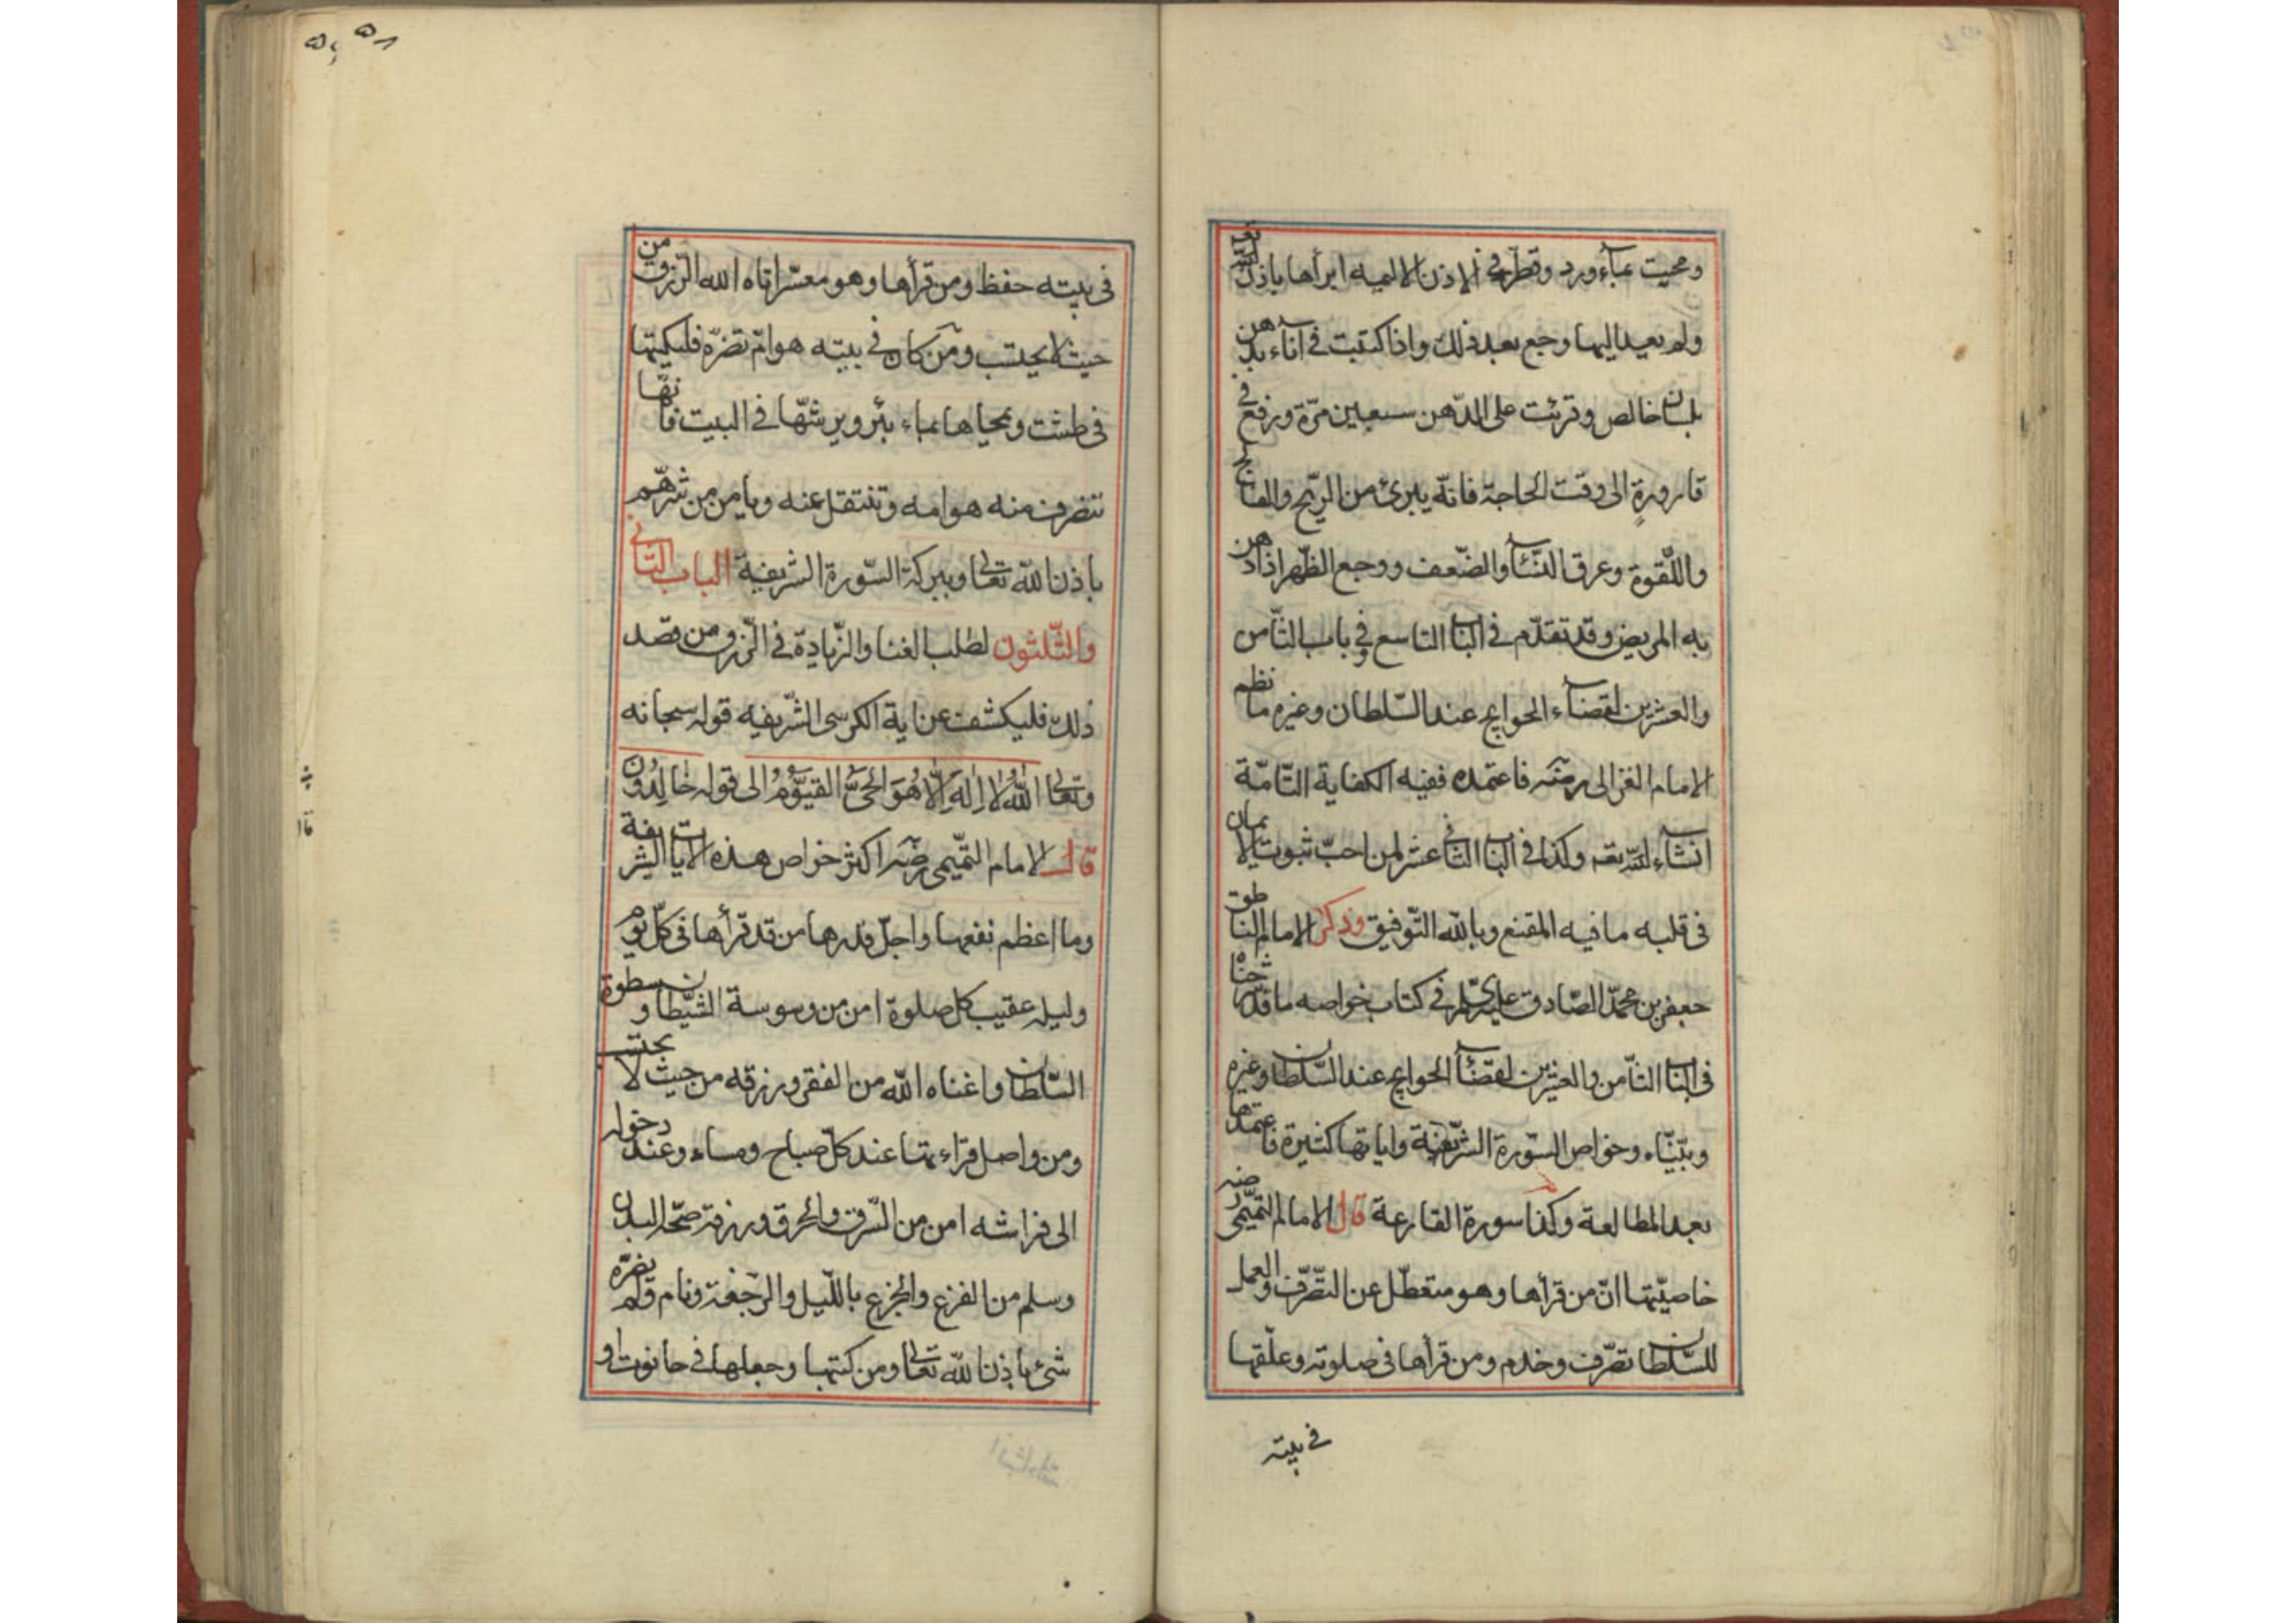 ومحيت بماء ورد وقطر في الاذن الالميه ابرأها باذن الله تع
ولم يعيد اليها وجع بعد ذلك واذا كتبت في اناء بدهن
بلسان خالص وقرئت على الدّهن سبعين مرّة ورفع في
قارورةٍ الى وقت الحاجة فانّه يبرئ من الرّيح والفالج
واللّقوة وعرق النّسآ والضّعف ووجع الظّهر اذا دهن
به المريض وقد تقدّم في الباب التاسع وفي باب الثّامن
والعشرين لقضاء الحوايج عند السّلطان وغيره ما نظم
الامام الغزالى رضى فاعتمده ففيه الكفاية التّامّة
انشاء لله تعه وكذا في الباب الثانى عشر لمن احبّ ثبوت الايمان
فى قلبه ما فيه المقنع وبالله التّوفيق وذكر الامام الناطق
جعفر بن محمّد الصّادق عليه السّلم في كتاب خواصه ما قد شرحناه
فى الباب الثّامن والعشرين لقضآء الحوايج عند السّلطان وغيره
وبيّنّاه وخواص السّورة الشّريفة واياتها كثيرة فاعتمدها
بعد المطالعة وكذا سورة القارعة قال الامام التّميمى رضه
خاصيّتها انّ من قرأها وهو متعطّل عن التّصّرّف والعمل
للسّلطان تصّرف وخدم ومن قرأها فى صلوته وعلّقها
في بيته
۵۸
فى بيته حفظ ومن قرأها وهو معسّر اتاه الله الرّزق من
حيث لا يحتسب ومن كان في بيته هوامّ تضرّه فليكتبها
فى طشت ويمحياها بماء بئر ويرشّها في البيت فانّها
تنصرف منه هوامه وتنتقل عنه ويامن من شرّهم
باذن الله تعالى وببركة السّورة الشريفية الباب الثانى
والثّلثون لطلب الغنا والزّيادة في الرّزق ومن قصد
ذلك فليكشف عن اية الكرسى الشّريفيه قوله سبحانه
وتعالى اَللّٰهُ لَا اِلٰهَ اِلَّا هُوَ الْحَىُّ القَيُّومُ الى قوله خَالِدُونَ
قال الامام التّميمى رضه اكثر خواص هذه الايات الشريفة
وما اعظم نفعها واجلّ قدرها من قد قرأها فى كلّ يوم
وليله عقيب كل صلوة امن من وسوسة الشّيطان وسطوة
السّلطان واغناه الله من الفقر ورزقه من حيث لا يحتسب
ومن واصل قراءتها عند كلّ صباح ومساء وعند دخوله
الى فراشه امن من السّرق والحرق ورزق صحّة البدن
وسلم من الفزع والجزع بالليّل والرّجفة ونام ولم يضرّه
شئ باذن الله تعالى ومن كتبها وجعلها في حانوت او